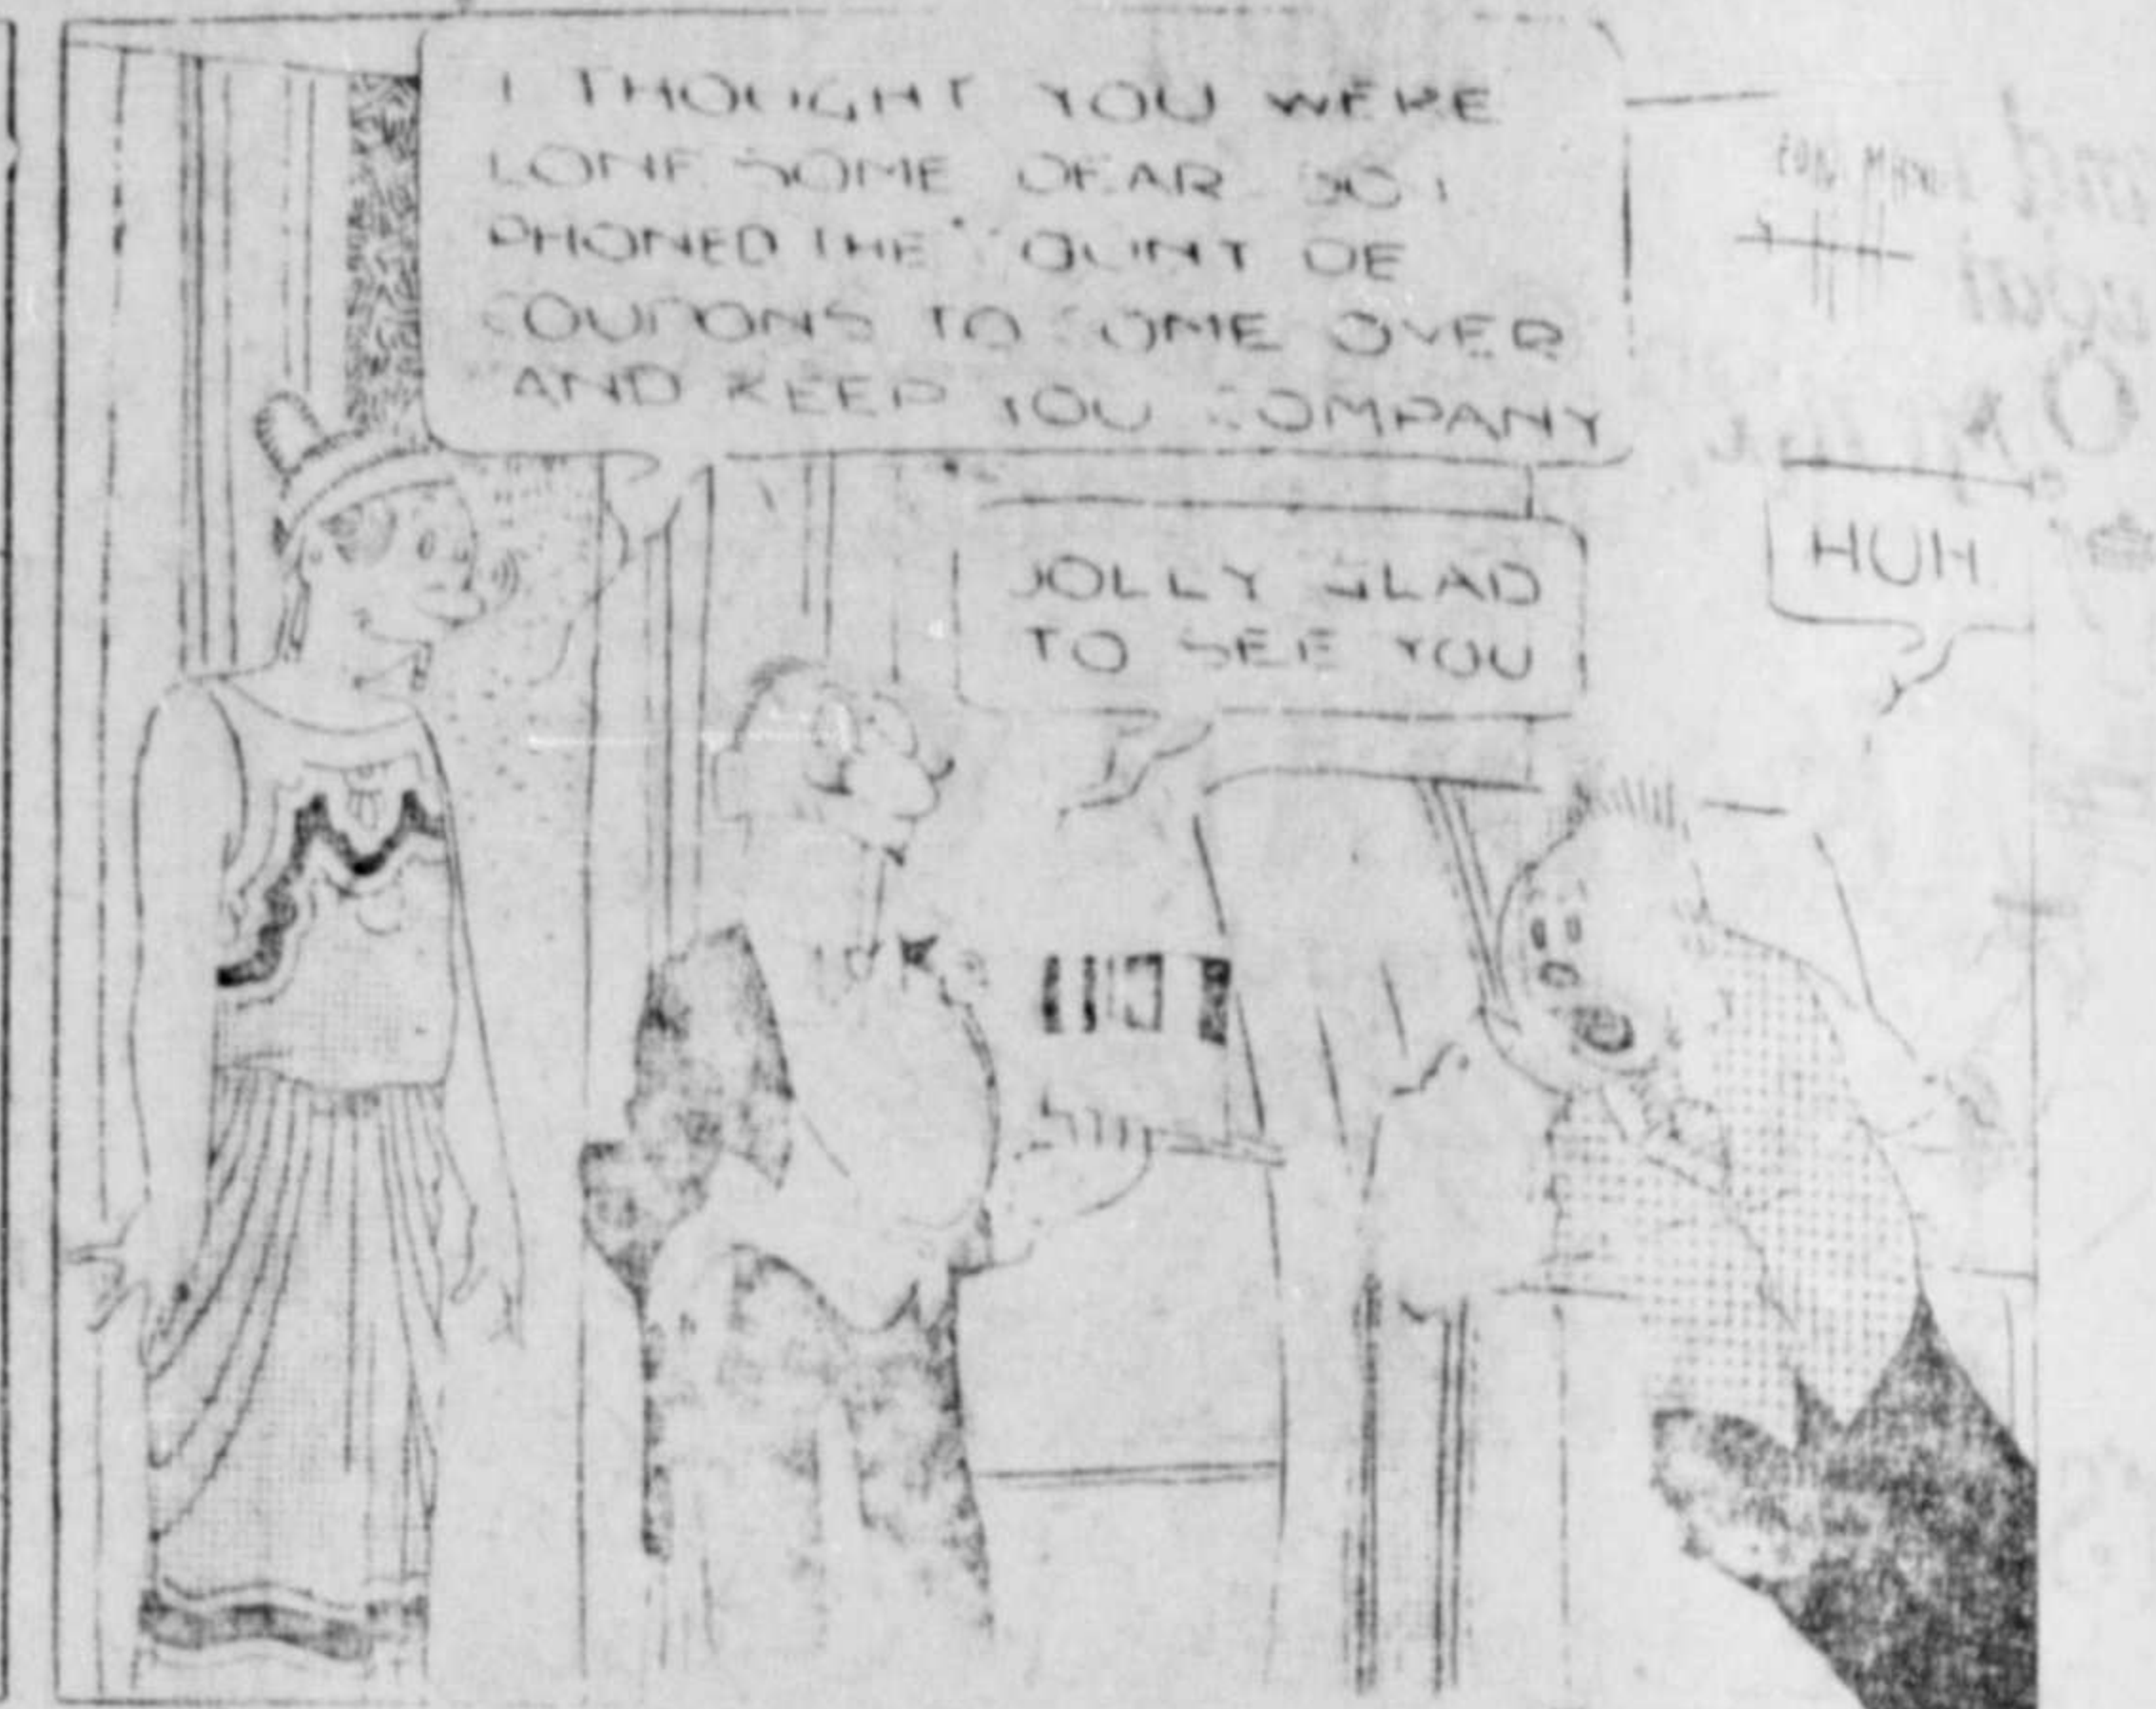 I THOUGHT YOU WERE
LONESOME DEAR SO I
PHONED THE COUNT DE
COUPONS TO COME OVER
AND KEEP YOU COMPANY
JOLLY GLAD
TO SEE YOU
HUH